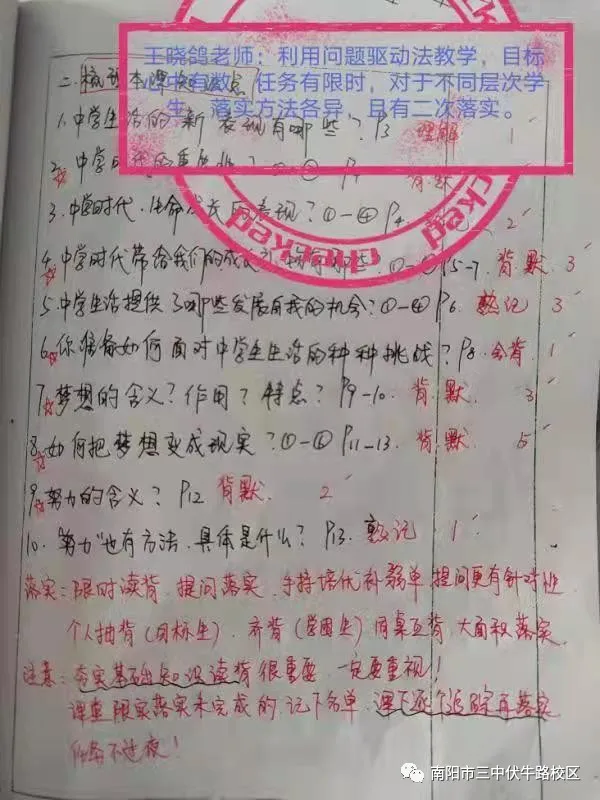 王晓鸽老师：利用问题驱动法教学，目标
有数，任务有限时，对于不同层次学
生，落实方法各异，且有二次落实。
二.梳理本课知识点
1.中学生活的"新"表现有哪些？P3 理解 1′
2.中学时代的重要性？ 背.默
3.中学时代.生命成长的表现？①-④ P4 2′
4.中学时代带给我们的成长礼物有哪些 P5-7 背.默 3′
5.中学生活提供了哪些发展自我的机会？①-④ P6 熟记 3′
6.你准备如何面对中学生生活的种种挑战？P8 会背 1′
7.梦想的含义？作用？特点？P9-10 背.默 3′
8.如何把梦想变成现实？ P11-13 背.默 5′
9.努力的含义？P12 背默 2′
10."努力"也有方法.具体是什么？P13. 熟记 1′
落实：限时读背.提问落实.手持培优补弱单.提问更有针对性
个人抽背（目标生）.齐背（学困生）同桌互背.大面积落实
注意：夯实基础知识读背很重要.一定要重视！
课堂限实落实未完成的.记下名单.课下逐个追踪再落实
任务不过夜！
checked
南阳市三中伏牛路校区